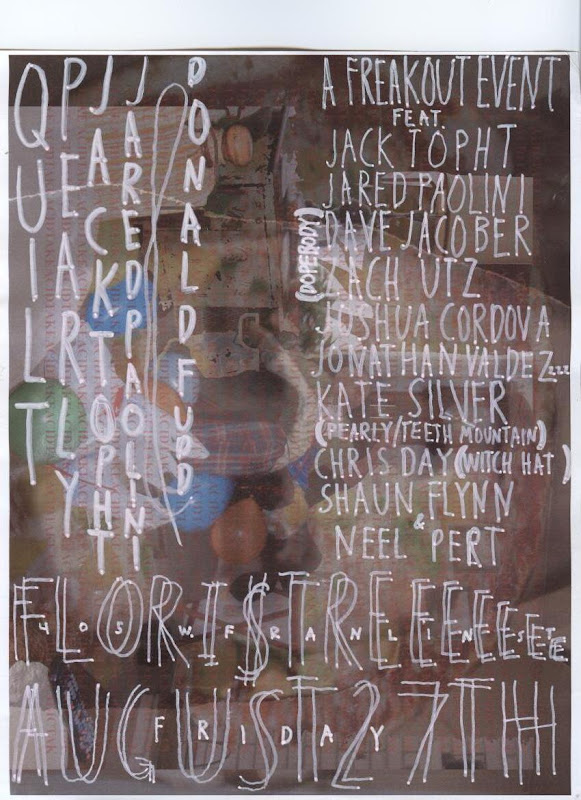 QUILT
PEARLY
JACK TOPHT
JARED PAOLINI
DONALD
A FREAKOUT EVENT
FEAT.
JACK TOPHT
JARED PAOLINI
DAVE JACOBER
(DOPEBODY)
ZACH UTZ
JOSHUA CORDOVA
JONATHAN VALDEZzzz
KATE SILVER
(PEARLY/TEETH MOUNTAIN)
CHRIS DAY (WITCH HAT)
SHAUN FLYNN
&
NEEL PERT
FLORI$TREEEEEEE
405 W. FRANLIN ST
AUGUST 27TH
FRIDAY